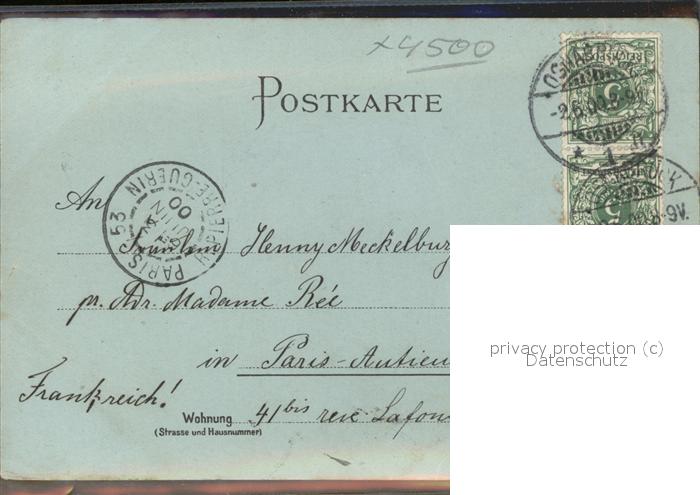 x 4500
POSTKARTE
REICHSPOST
5
OSNABRÜCK
-2.6.00.8-9V.
* 1 n
5
PARIS 53 R. PIERRE-GUERIN
JUIN
00
An
Fräulein Henny Meckelburg
pr. Adr. Madame Rée
in Paris-Auteu
Frankreich!
Wohnung 41bis rue Lafon
(Strasse und Hausnummer)
privacy protection (c)
Datenschutz